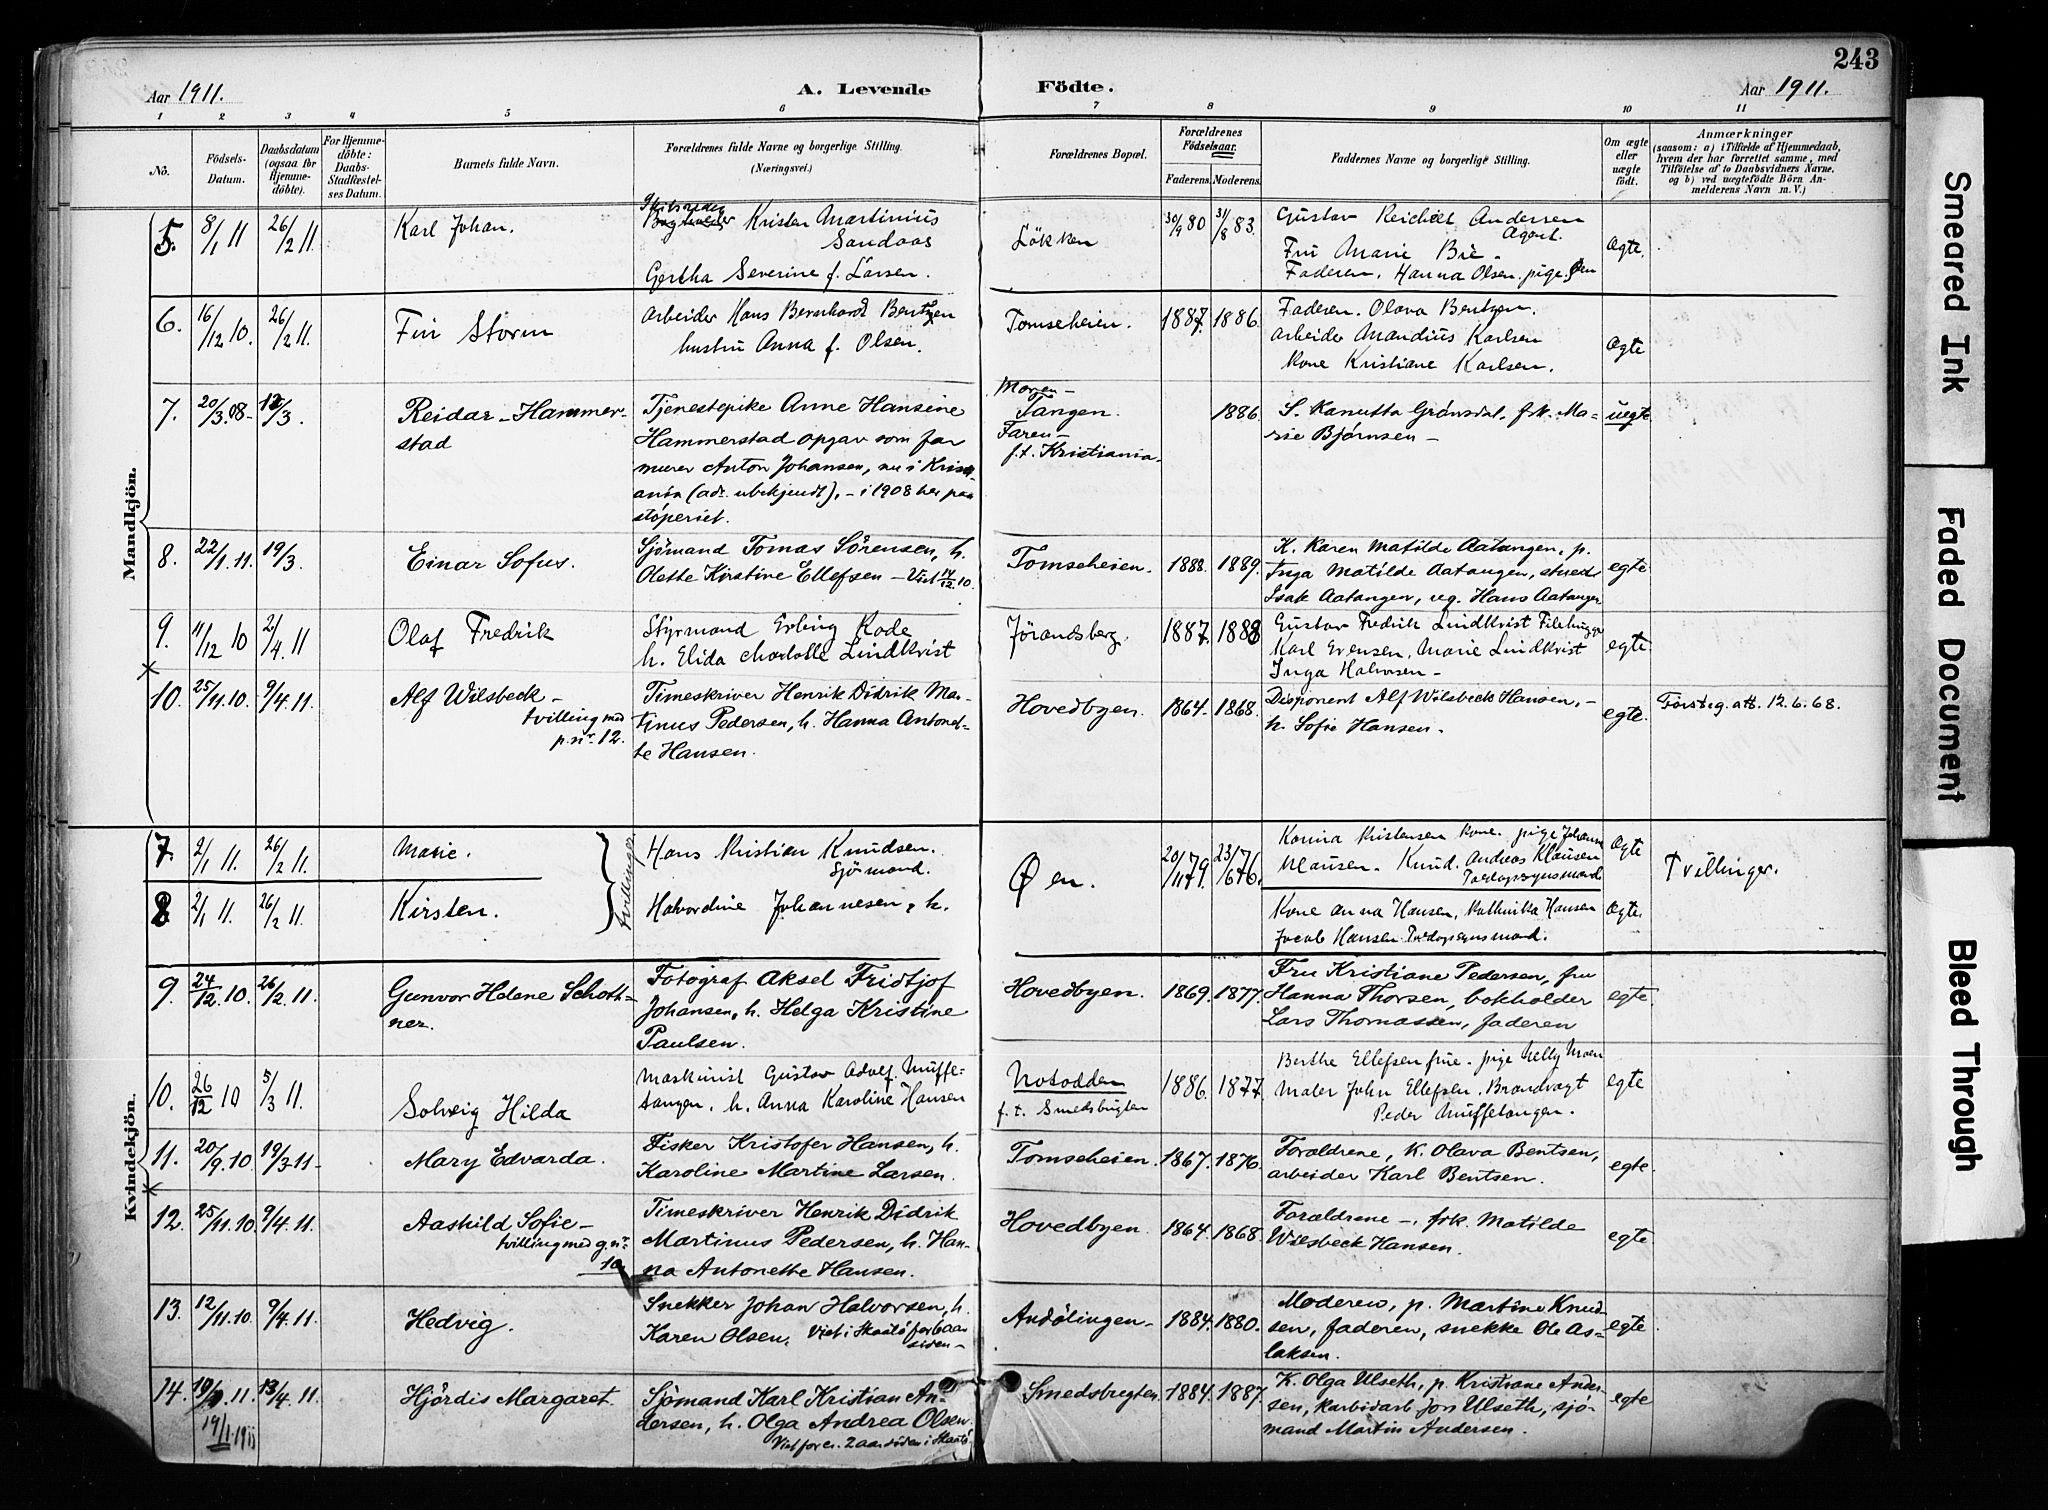 243
Aar 1911.
A. Levende
Födte.
Aar 1911.
1 2 3 4 5 6 7 8 9 10 11
No.
Födsels-
Datum.
Daabsdatum
(ogsaa for
Hjemme-
döbte).
For Hjemme-
döbte:
Daabs-
Stadfæstel-
ses Datum.
Barnets fulde Navn.
Forældrenes fulde Navne og borgerlige Stilling.
(Næringsvei.)
Forældrenes Bopæl.
Forældrenes
Födselsaar.
Faderens. Moderens.
Faddernes Navne og borgerlige Stilling.
Om ægte
eller
uægte
födt.
Anmærkninger
(saasom: a) i Tilfælde af Hjemmedaab,
hvem der har forrettet samme, med
Tilföielse af to Daabsvidners Navne.
og b) ved uægtefödte Börn An-
melderens Navn m. V.)
Mandkjön.
5. 8/1 11 26/2 11. Karl Johan.
Skibsreder
Kristen Martinius
Sandaas
Gertha Severine f. Larsen.
Løkken
30/9 80 31/8 83.
Gustav Reichelt Andersen
Agent.
Fru Marie Bie-
Faderen, Hanna Olsen, pige,
Ægte.
6. 16/12 10. 26/2 11. Finn Storm
Arbeider Hans Bernhard Bentzen
hustru Anna f. Olsen.
Tomseheien. 1887. 1886.
Faderen. Olava Bentzen.
arbeider Mandius Karlsen
Kone Kristiane Karlsen.
Ægte
7. 20/3 08- 12/3. Reidar-Hammer-
stad
Tjenestepike Anne Hansine
Hammerstad opgav som far
murer Anton Johansen, nu i Kristi-
ania (adr. ubekjendt), - i 1908 her paa
støperiet.
Moren-
Tangen.
Faren-
f.t. Kristiania.
1886.
S. Kanutta Grønsdal, frk. Ma-
rie Bjørnsen-
uegte
8. 22/1 11. 19/3. Einar Sofus.
Sjömand Tomas Sörensen, h.
Olette Kirstine Ellefsen - Viet 17/12 10.
Tomseheien. 1888. 1889.
K. Karen Matilde Aatangen, p.
Inga Matilde Aatangen,
Isak Aatangen, ug. Hans Aatangen
egte
9. 11/12 10 2/4 11 Olaf Fredrik
Styrmand Erling Kode
h. Elida Charlotte Lindkvist
Jørandsberg. 1887. 1888
Gustav Fredrik Lindkvist Filehugger
Karl Evensen, Marie Lindkvist
Inga Halvorsen-
egte
10. 25/11. 10. 9/4. 11. Alf Wilsbeck-
tvilling med
p. nr. 12.
Timeskriver Henrik Didrik Mar-
tinus Pedersen, h. Hanna Antonet-
te Hansen.
Hovedbyen. 1864. 1868.
Disponent Alf Wilsbeck Hansen, -
h. Sofie Hansen.
egte.
Førsteg. att. 12.6.68.
Kvindekjön.
7. 2/1 11. 26/2 11. Marie.
tvillinger
Hans Kristian Knudsen.
Sjömand.
Øen.
20/11 79. 23/6 76.
Karina Kristensen Kone. pige Johanne
Klausen. Knud Andreas Klausen
Ægte
Tvillinger.
8 2/1 11. 26/2 11. Kirsten.
Halvordine Johannesen, h.
Kone Anna Hansen, Kathinka Hansen
Jacob Hansen
Ægte.
9. 24/12. 10. 26/2. 11. Gunvor Helene Schoth-
ner.
Fotograf Aksel Fridtjof
Johansen, h. Helga Kristine
Paulsen.
Hovedbyen. 1869. 1877.
Fru Kristiane Pedersen, fru
Hanna Thorsen, bokholder
Lars Thomassen, faderen
egte
10. 26/12 10 5/3 11. Solveig Hilda
Maskinist Gustav Adolf Muffe-
tangen, h. Anna Karoline Hansen
Notodden
f. t. Smedsbugten
1886. 1877.
Berthe Ellefsen frue. pige Nelly Moen
Maler John Ellefsen. Brandvagt
Peder Muffetangen.
egte
11. 20/9. 10. 19/3 11- Mary Edvarda.
Fisker Kristofer Hansen, h.
Karoline Martine Larsen.
Tomseheien. 1867. 1876.
Forældrene, K. Olava Bentsen,
arbeider Karl Bentsen.
egte.
12. 25/11. 10. 9/4. 11. Aashild Sofie-
tvilling med g. nr.
10
Timeskriver Henrik Didrik
Martinus Pedersen, h. Han-
na Antonette Hansen.
Hovedbyen. 1864. 1868.
Forældrene -, frk. Matilde
Wilsbeck Hansen.
egte
13. 12/11. 10. 9/4. 11. Hedvig.
Snekker Johan Halvorsen, h.
Karen Olsen. Viet i Skaatö for 6 aar
siden-
Andølingen- 1884. 1880.
Moderen, p. Martine Knud-
sen, faderen, snekke Ole As-
laksen.
egte
14. 11. 13/4. 11. Hjördis Margaret.
19/1 1911
Sjömand Karl Kristian An-
dersen, h. Olga Andrea Olsen.
Viet for ca. 2 aar siden i Skaatö
Smedsbugten 1884. 1887.
K. Olga Ulseth, p. Kristiane Ander-
sen, karbidarb. Jørs Ulseth, sjö-
mand Martin Andersen.
egte
Smeared Ink
Faded Document
Bleed Through